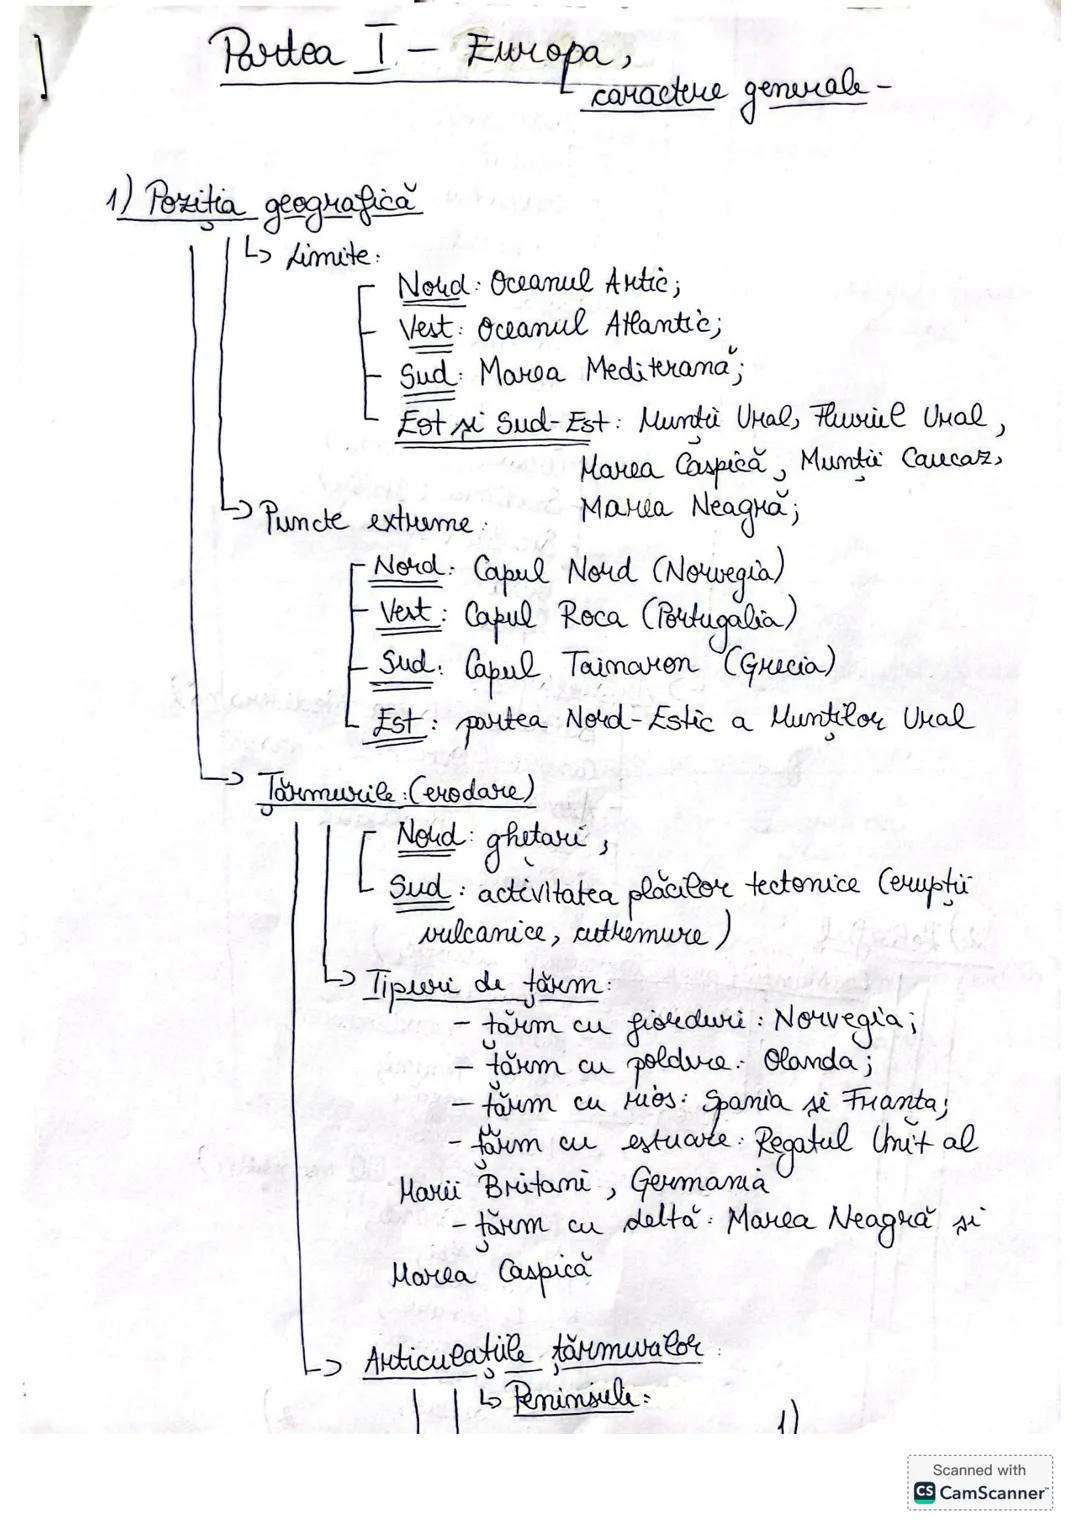 Partea I - Europa,
caractere generale -
1) Poziția geografică
↳ Limite:
Nord: Oceanul Artic;
Vest: Oceanul Atlantic;
Sud: Marea Mediterană;
Est și Sud-Est: Munții Ural, Fluviul Ural,
Marea Caspică, Munții Caucaz,
Marea Neagră;
→ Puncte extreme:
Nord: Capul Nord (Norvegia)
Vest: Capul Roca (Portugalia)
Sud: Capul Tainaron (Grecia)
Est: partea Nord-Estic a Munților Ural
→ Țărmurile: (erodare)
Nord: ghețari;
Sud: activitatea plăcilor tectonice (erupții
vulcanice, cutremure)
→ Tipuri de țărm:
- țărm cu fiorduri: Norvegia;
- țărm cu poldere: Olanda;
- țărm cu rios: Spania și Franța;
- țărm cu estuare: Regatul Unit al
Marii Britani, Germania
- țărm cu deltă: Marea Neagră și
Marea Caspică
→ Articulațiile țărmurilor
↳ Peninsule:
1)
Scanned with
CS CamScanner